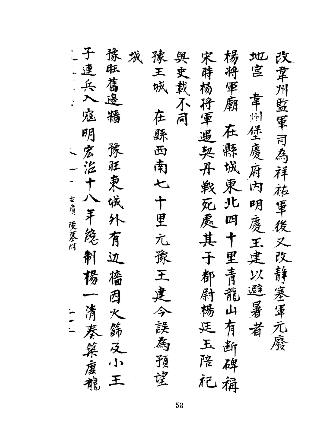 改韋州監軍司為祥祐軍後又改靜塞軍元廢
地宫 韋州堡慶府內明慶王建以避暑者
楊將軍廟 在縣城東北四十里青龍山有斷碑稱
宋時楊將軍遇契丹戰死處其子都尉楊廷玉陪祀
與史載不同
豫王城 在縣西南七十里元豫王建今誤為預望
城
豫旺舊邊牆 豫旺東城外有边墻因火篩及小王
子連兵入寇明宏治十八年總制楊一清奏築
53